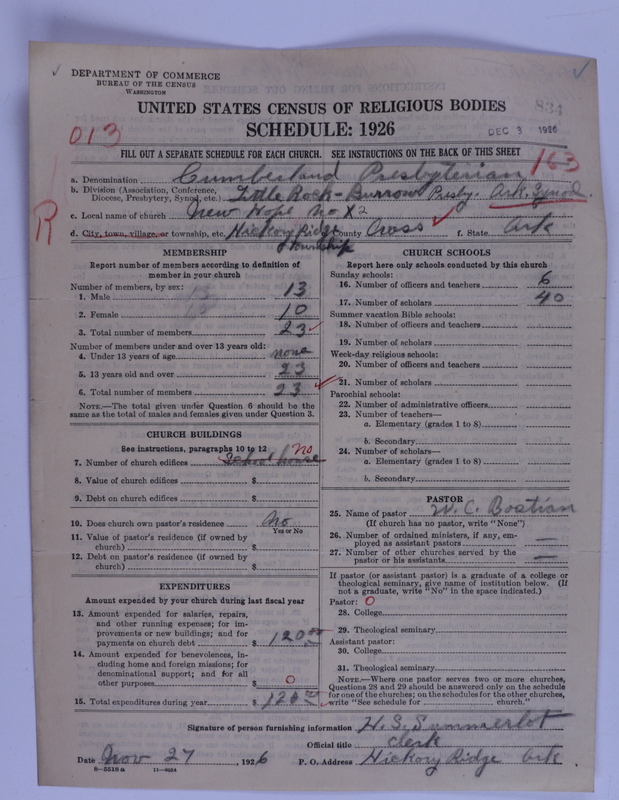 DEPARTMENT OF COMMERCE
BUREAU OF THE CENSUS
WASHINGTON
UNITED STATES CENSUS OF RELIGIOUS BODIES
834
SCHEDULE: 1926
DEC 3 1926
013
FILL OUT A SEPARATE SCHEDULE FOR EACH CHURCH. SEE INSTRUCTIONS ON THE BACK OF THIS SHEET
163
a. Denomination Cumberland Presbyterian
b. Division (Association, Conference, Diocese, Presbytery, Synod, etc.) Little Rock-Burrow Presby. Ark. Synod.
R
c. Local name of church New Hope No X2
d. City, town, village, or township, etc. Hickory Ridge township County Cross f. State Ark
MEMBERSHIP
Report number of members according to definition of
member in your church
Number of members, by sex:
1. Male 13
2. Female 10
3. Total number of members 23
Number of members under and over 13 years old:
4. Under 13 years of age none
5. 13 years old and over 23
6. Total number of members 23
NOTE.—The total given under Question 6 should be the
same as the total of males and females given under Question 3.
CHURCH BUILDINGS
See instructions, paragraphs 10 to 12
no
7. Number of church edifices School house
8. Value of church edifices $
9. Debt on church edifices $
10. Does church own pastor's residence No
Yes or No
11. Value of pastor's residence (if owned by
church) $
12. Debt on pastor's residence (if owned by
church) $
EXPENDITURES
Amount expended by your church during last fiscal year
13. Amount expended for salaries, repairs,
and other running expenses; for im-
provements or new buildings; and for
payments on church debt $ 120 00
14. Amount expended for benevolences, in-
cluding home and foreign missions; for
denominational support; and for all
other purposes $ 0
15. Total expenditures during year $ 120
CHURCH SCHOOLS
Report here only schools conducted by this church
Sunday schools:
16. Number of officers and teachers 6
17. Number of scholars 40
Summer vacation Bible schools:
18. Number of officers and teachers
19. Number of scholars
Week-day religious schools:
20. Number of officers and teachers
21. Number of scholars
Parochial schools:
22. Number of administrative officers
23. Number of teachers—
a. Elementary (grades 1 to 8)
b. Secondary
24. Number of scholars—
a. Elementary (grades 1 to 8)
b. Secondary
PASTOR
25. Name of pastor W. C. Bostian
(If church has no pastor, write "None")
26. Number of ordained ministers, if any, em-
ployed as assistant pastors —
27. Number of other churches served by the
pastor or his assistants —
If pastor (or assistant pastor) is a graduate of a college or
theological seminary, give name of institution below. (If
not a graduate, write "No" in the space indicated.)
Pastor: 0
28. College
29. Theological seminary
Assistant pastor:
30. College
31. Theological seminary
NOTE.—Where one pastor serves two or more churches,
Questions 28 and 29 should be answered only on the schedule
for one of the churches; on the schedules for the other churches,
write "See schedule for church."
Signature of person furnishing information H. S. Summerlot
Official title Clerk
Date Nov 27, 1926 P. O. Address Hickory Ridge Ark
8—5518a 11—9024